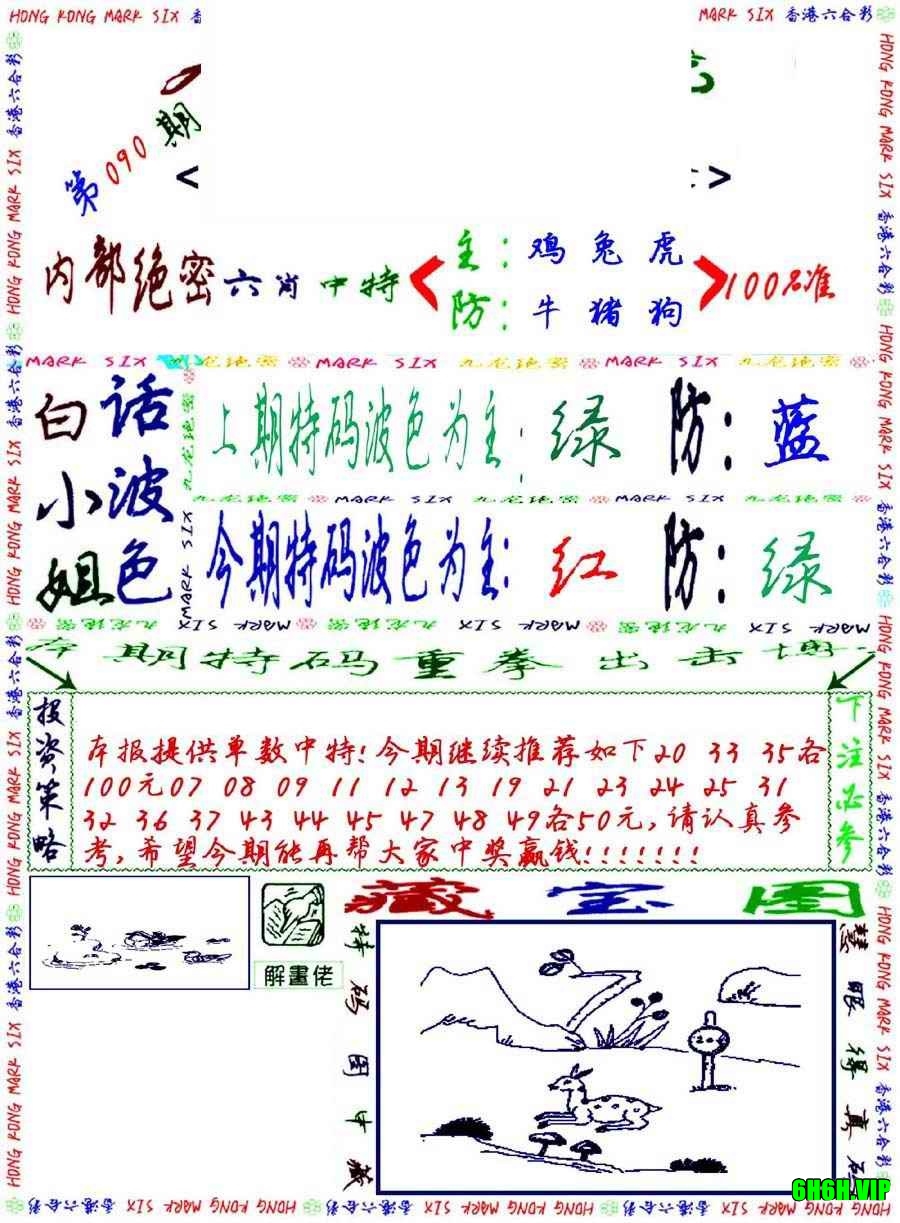 HONG KONG MARK SIX 香
MARK SIX 香港六合彩
第090期
< >
内部绝密六肖中特
主:鸡兔虎
防:牛猪狗
100%准
MARK SIX 九龙绝密 MARK SIX 九龙绝密 MARK SIX 九龙绝密
白话
小波
姐色
上期特码波色为主:绿 防:蓝
九龙绝密 MARK SIX 九龙绝密 MARK SIX 九龙绝密
今期特码波色为主:红 防:绿
MARK SIX 九龙绝密 MARK SIX 九龙绝密 MARK SIX 九龙绝密
本期特码重拳出击
投资策略
本报提供单数中特!今期继续推荐如下20 33 35各
100元07 08 09 11 12 13 19 21 23 24 25 31
32 36 37 43 44 45 47 48 49各50元,请认真参
考,希望今期能再帮大家中奖赢钱!!!!!!!
下注必参
解畫佬
藏宝图
特码图中藏
慧眼得真码
HONG KONG MARK SIX 香港六合彩
6H6H.VIP